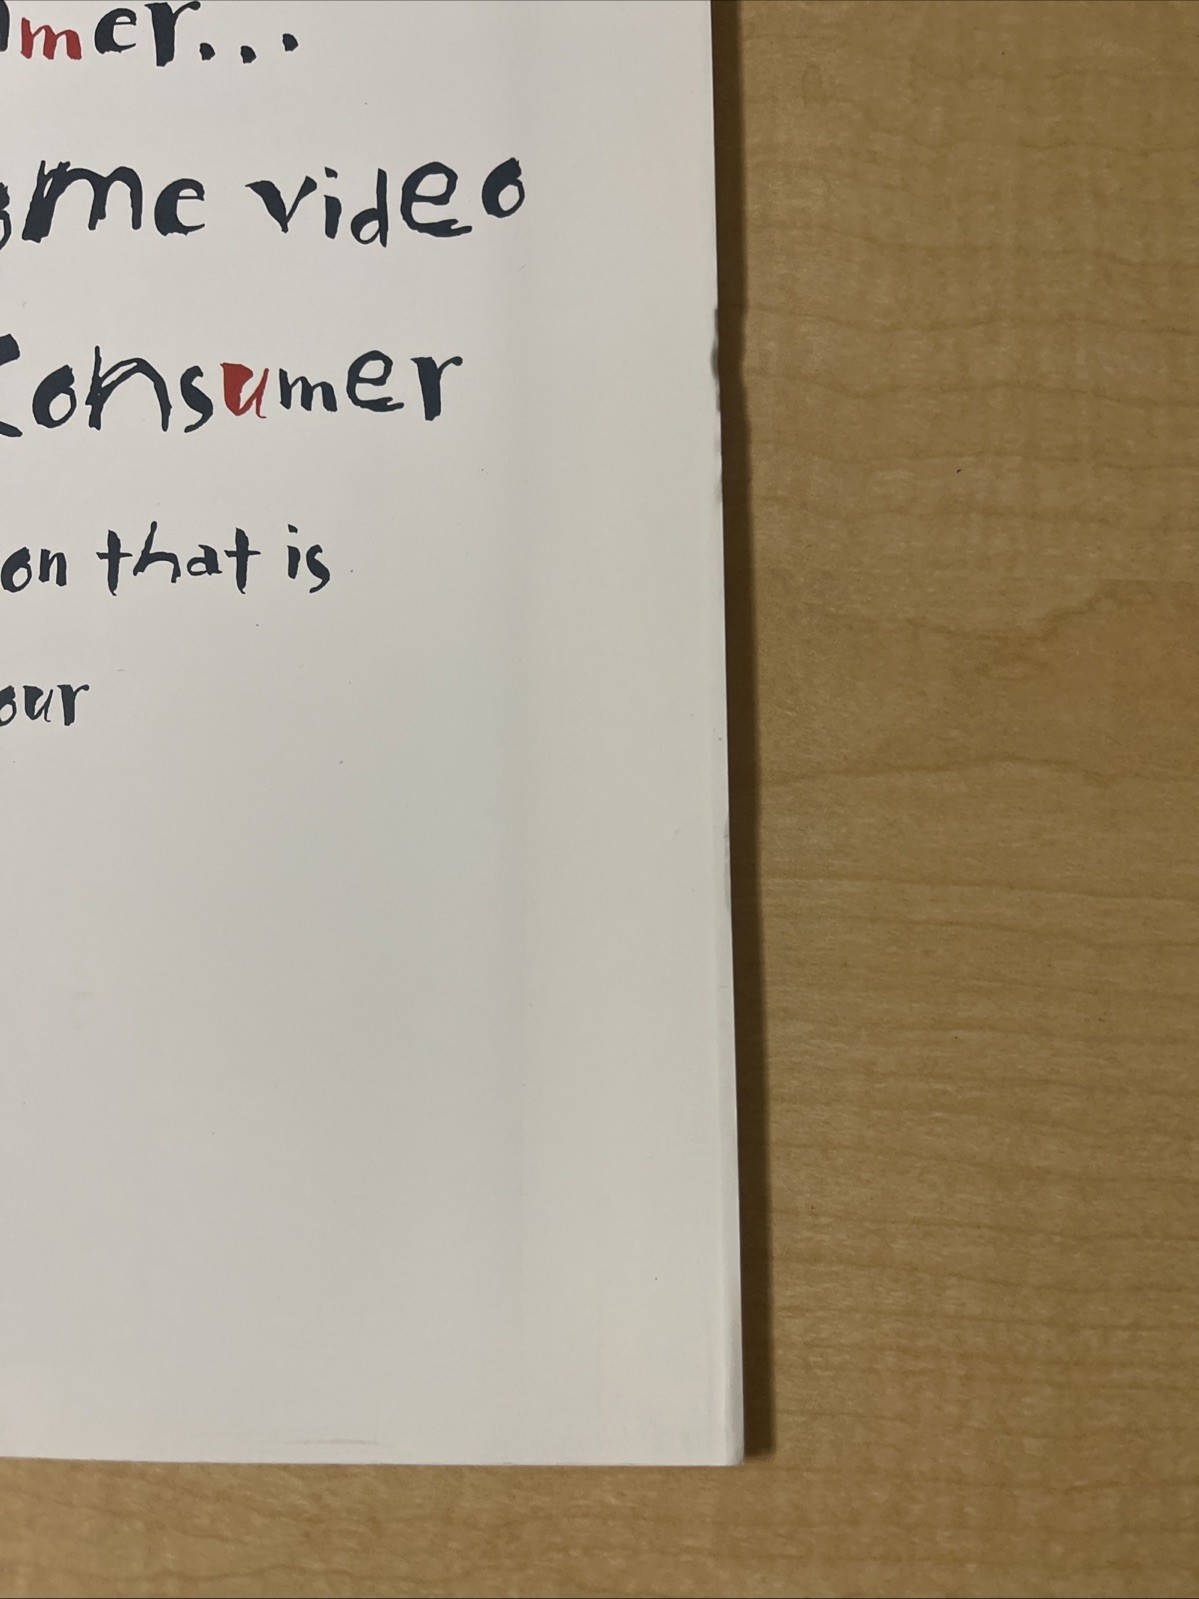 mer...
me video
Consumer
on that is
our